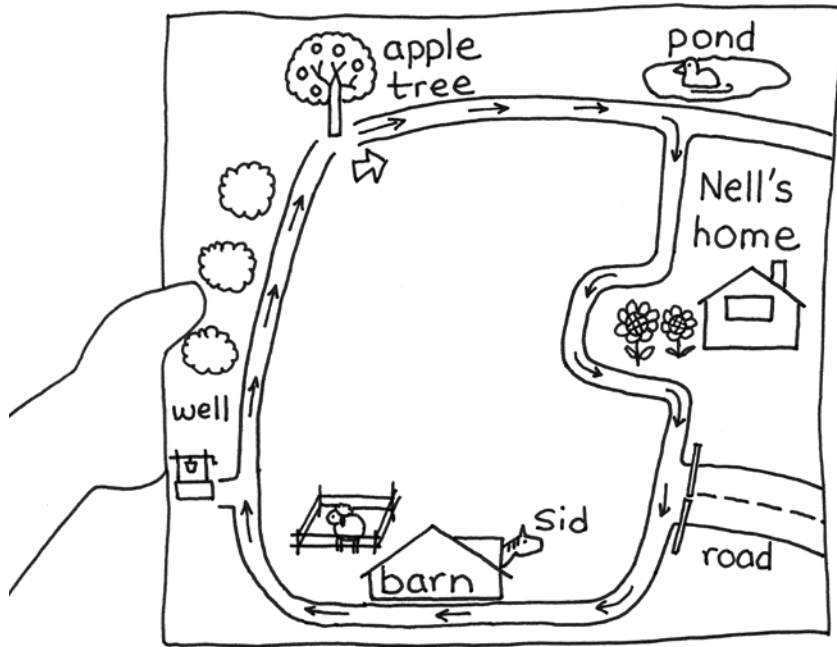 apple
tree
pond
Nell's
home
well
Sid
barn
road